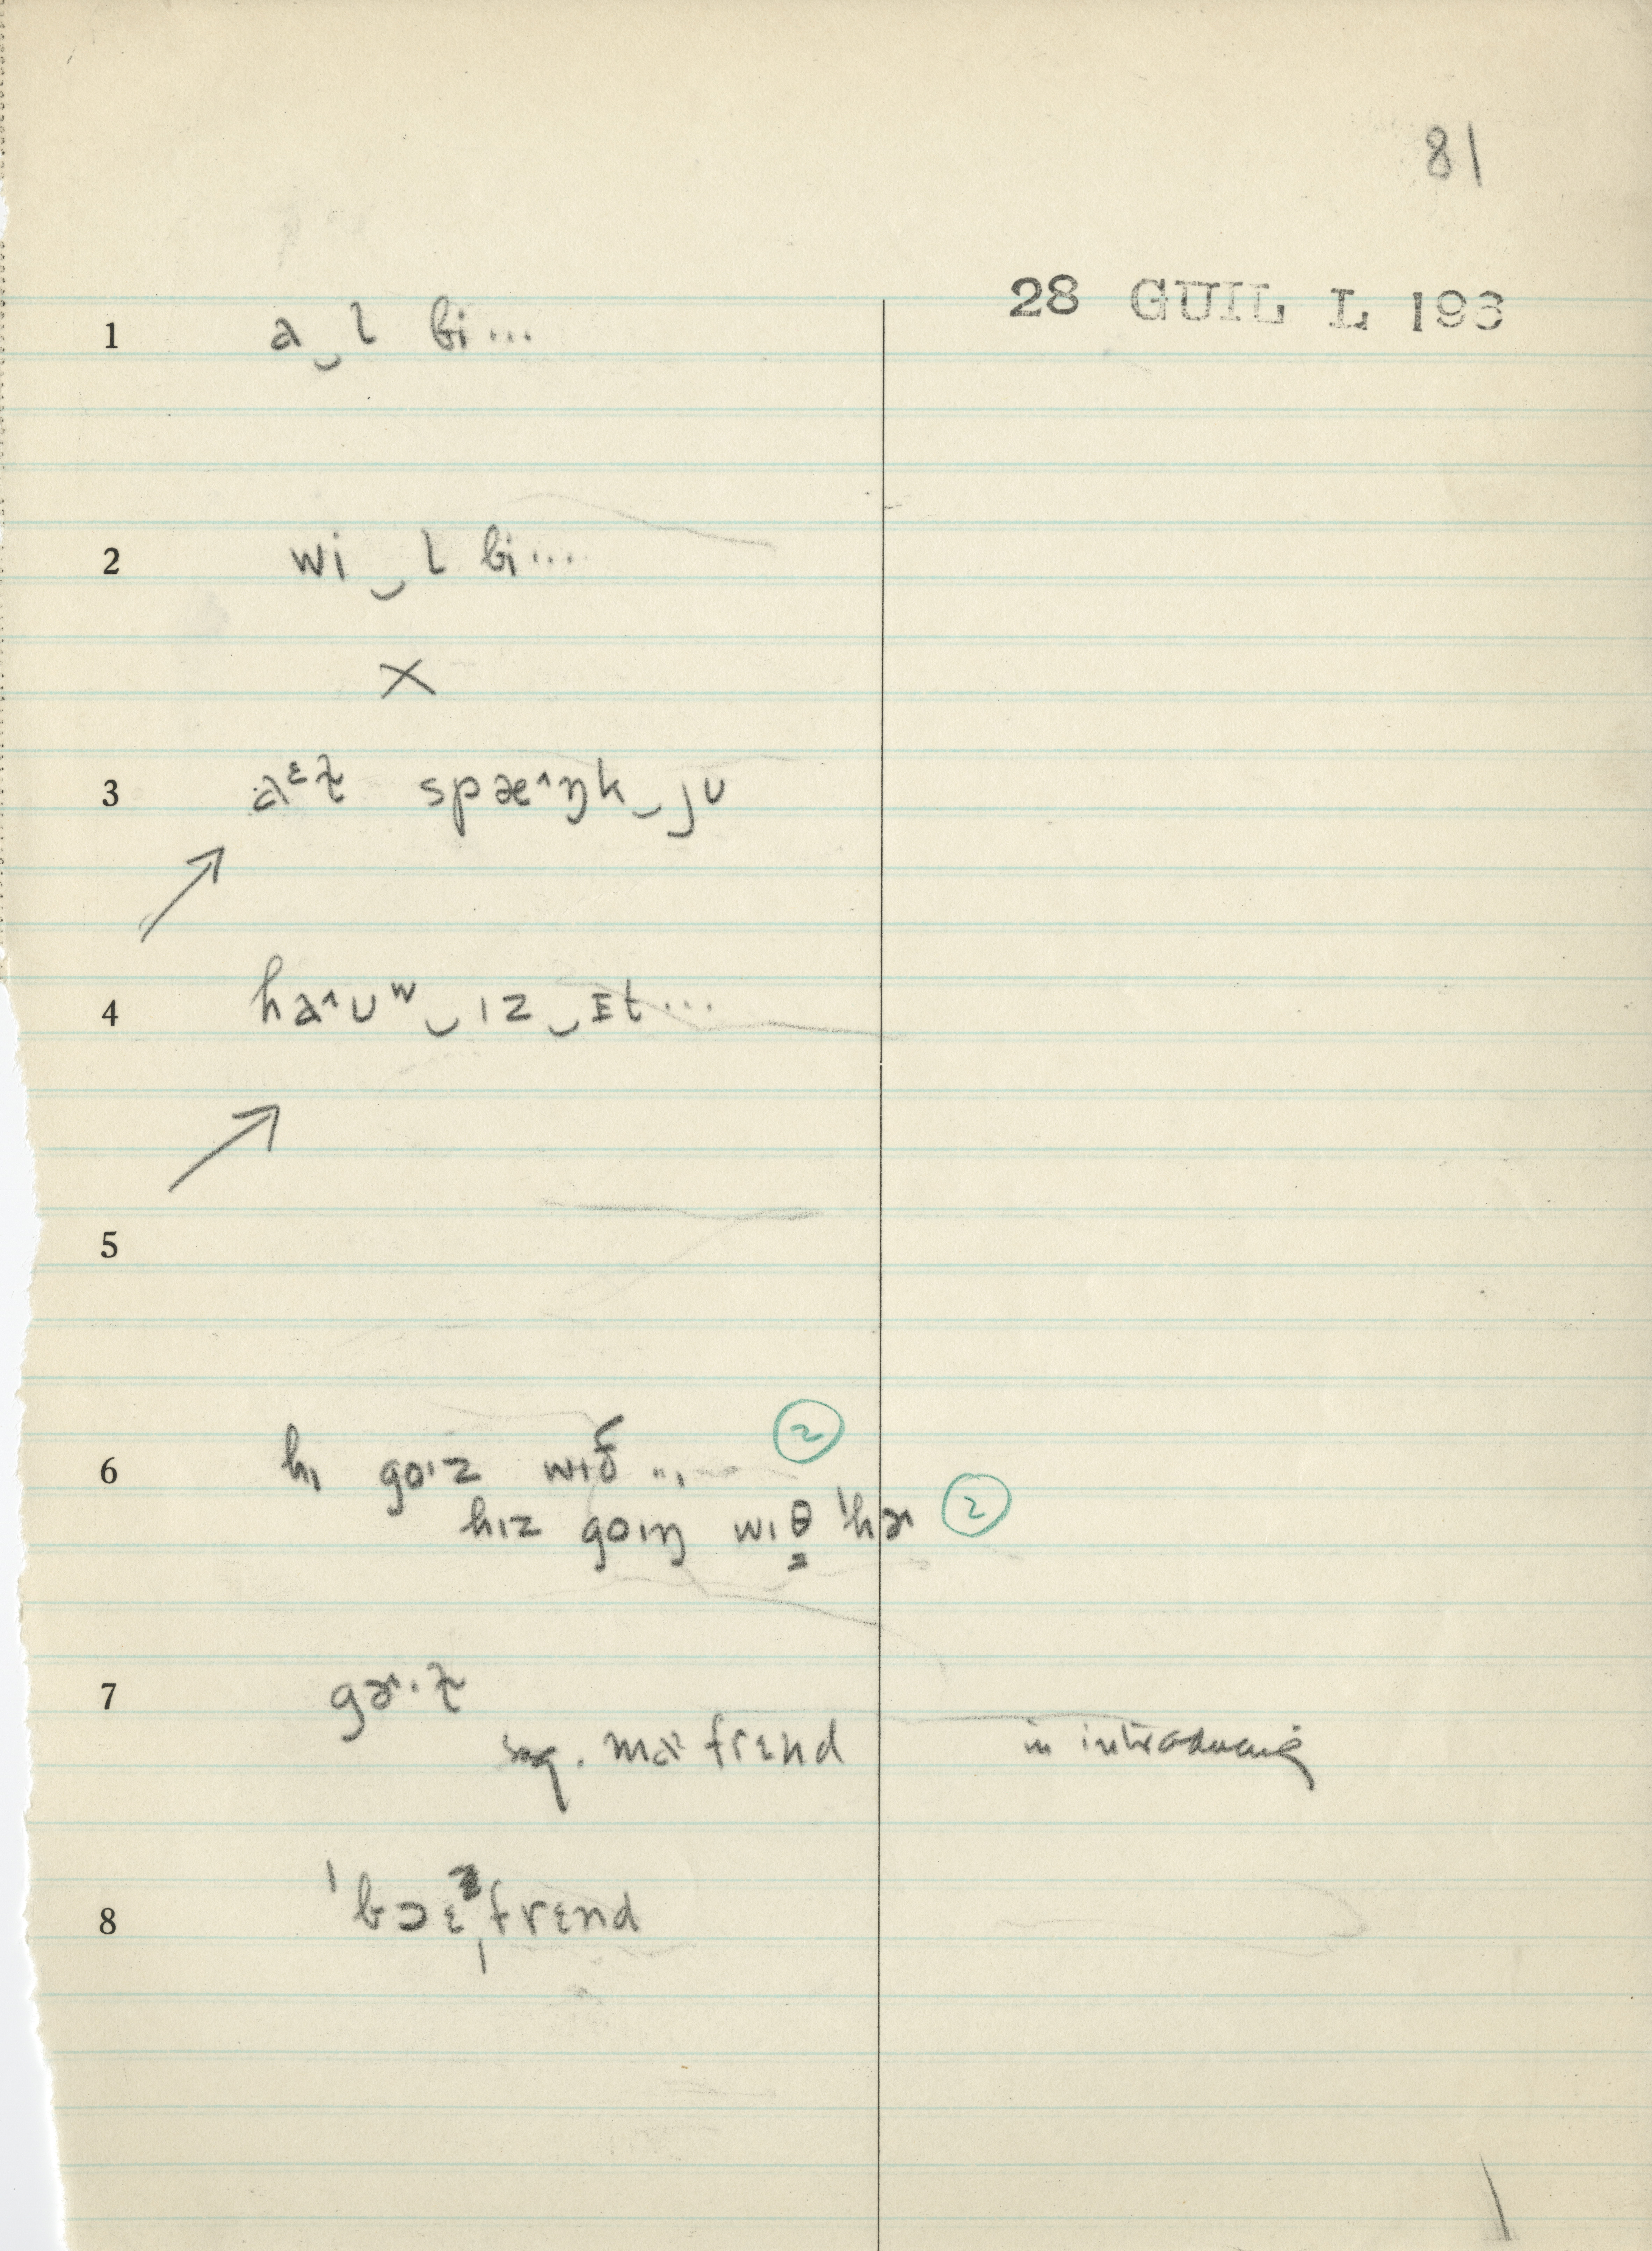 81
28 GUIL L 196
1 a‿l bi...
2 wi‿l bi....
×
3 aᵋɫ spæ˄ŋk‿jʊ
4 ha˄ʊʷ‿ɪz‿ɪt...
5
6 hɪ goɪz wɪð ... ②
hɪz goɪŋ wɪθ̳ 'hɚ ②
7 gɚ·ɫ
sq. ma˄ frɛnd in introducing
8 'bɔɛˌfrɛnd